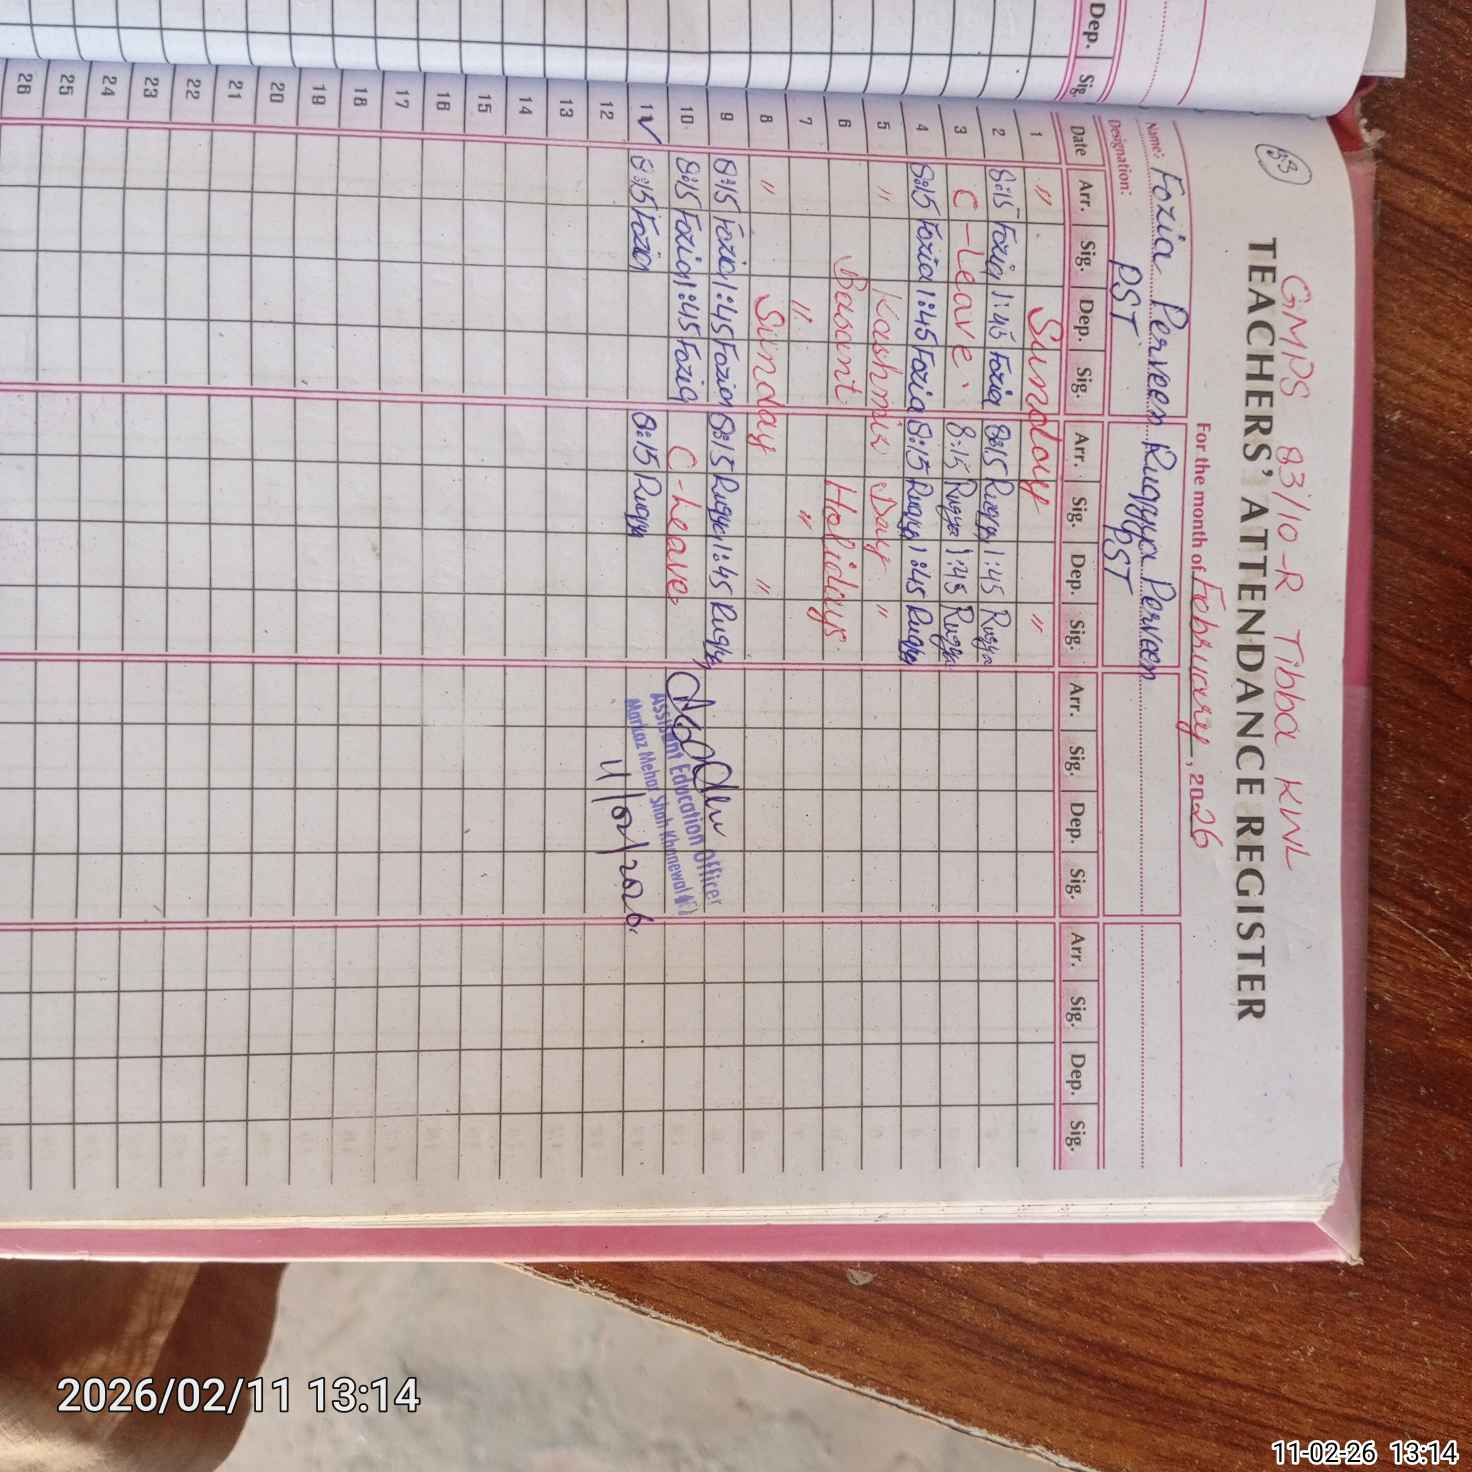 Dep. Sig.
83
GMPS 83/10-R Tibba KWL
TEACHERS' ATTENDANCE REGISTER
For the month of February, 2026
Name: Fozia Perveen Ruqyya Perveen
Designation: PST PST
Date Arr. Sig. Dep. Sig. Arr. Sig. Dep. Sig. Arr. Sig. Dep. Sig. Arr. Sig. Dep. Sig.
1 " Sunday "
2 8:15 Fozia 1:45 Fozia 8:15 Ruqyya 1:45 Ruqya
3 C-Leave. 8:15 Ruqya 1:45 Ruqya
4 8:15 Fozia 1:45 Fozia 8:15 Ruqya 1:45 Ruqya
5 " Kashmir Day "
6 Basant Holidays.
7 " "
8 " Sunday "
9 8:15 Fozia 1:45 Fozia 8:15 Ruqya 1:45 Ruqya
10 8:15 Fozia 1:45 Fozia C-Leave
11 ✓ 8:15 Fozia 8:15 Ruqya
Assistant Education Officer
Markaz Mehar Shah Khanewal
11/02/2026
12
13
14
15
16
17
18
19
20
21
22
23
24
25
26
2026/02/11 13:14
11-02-26 13:14